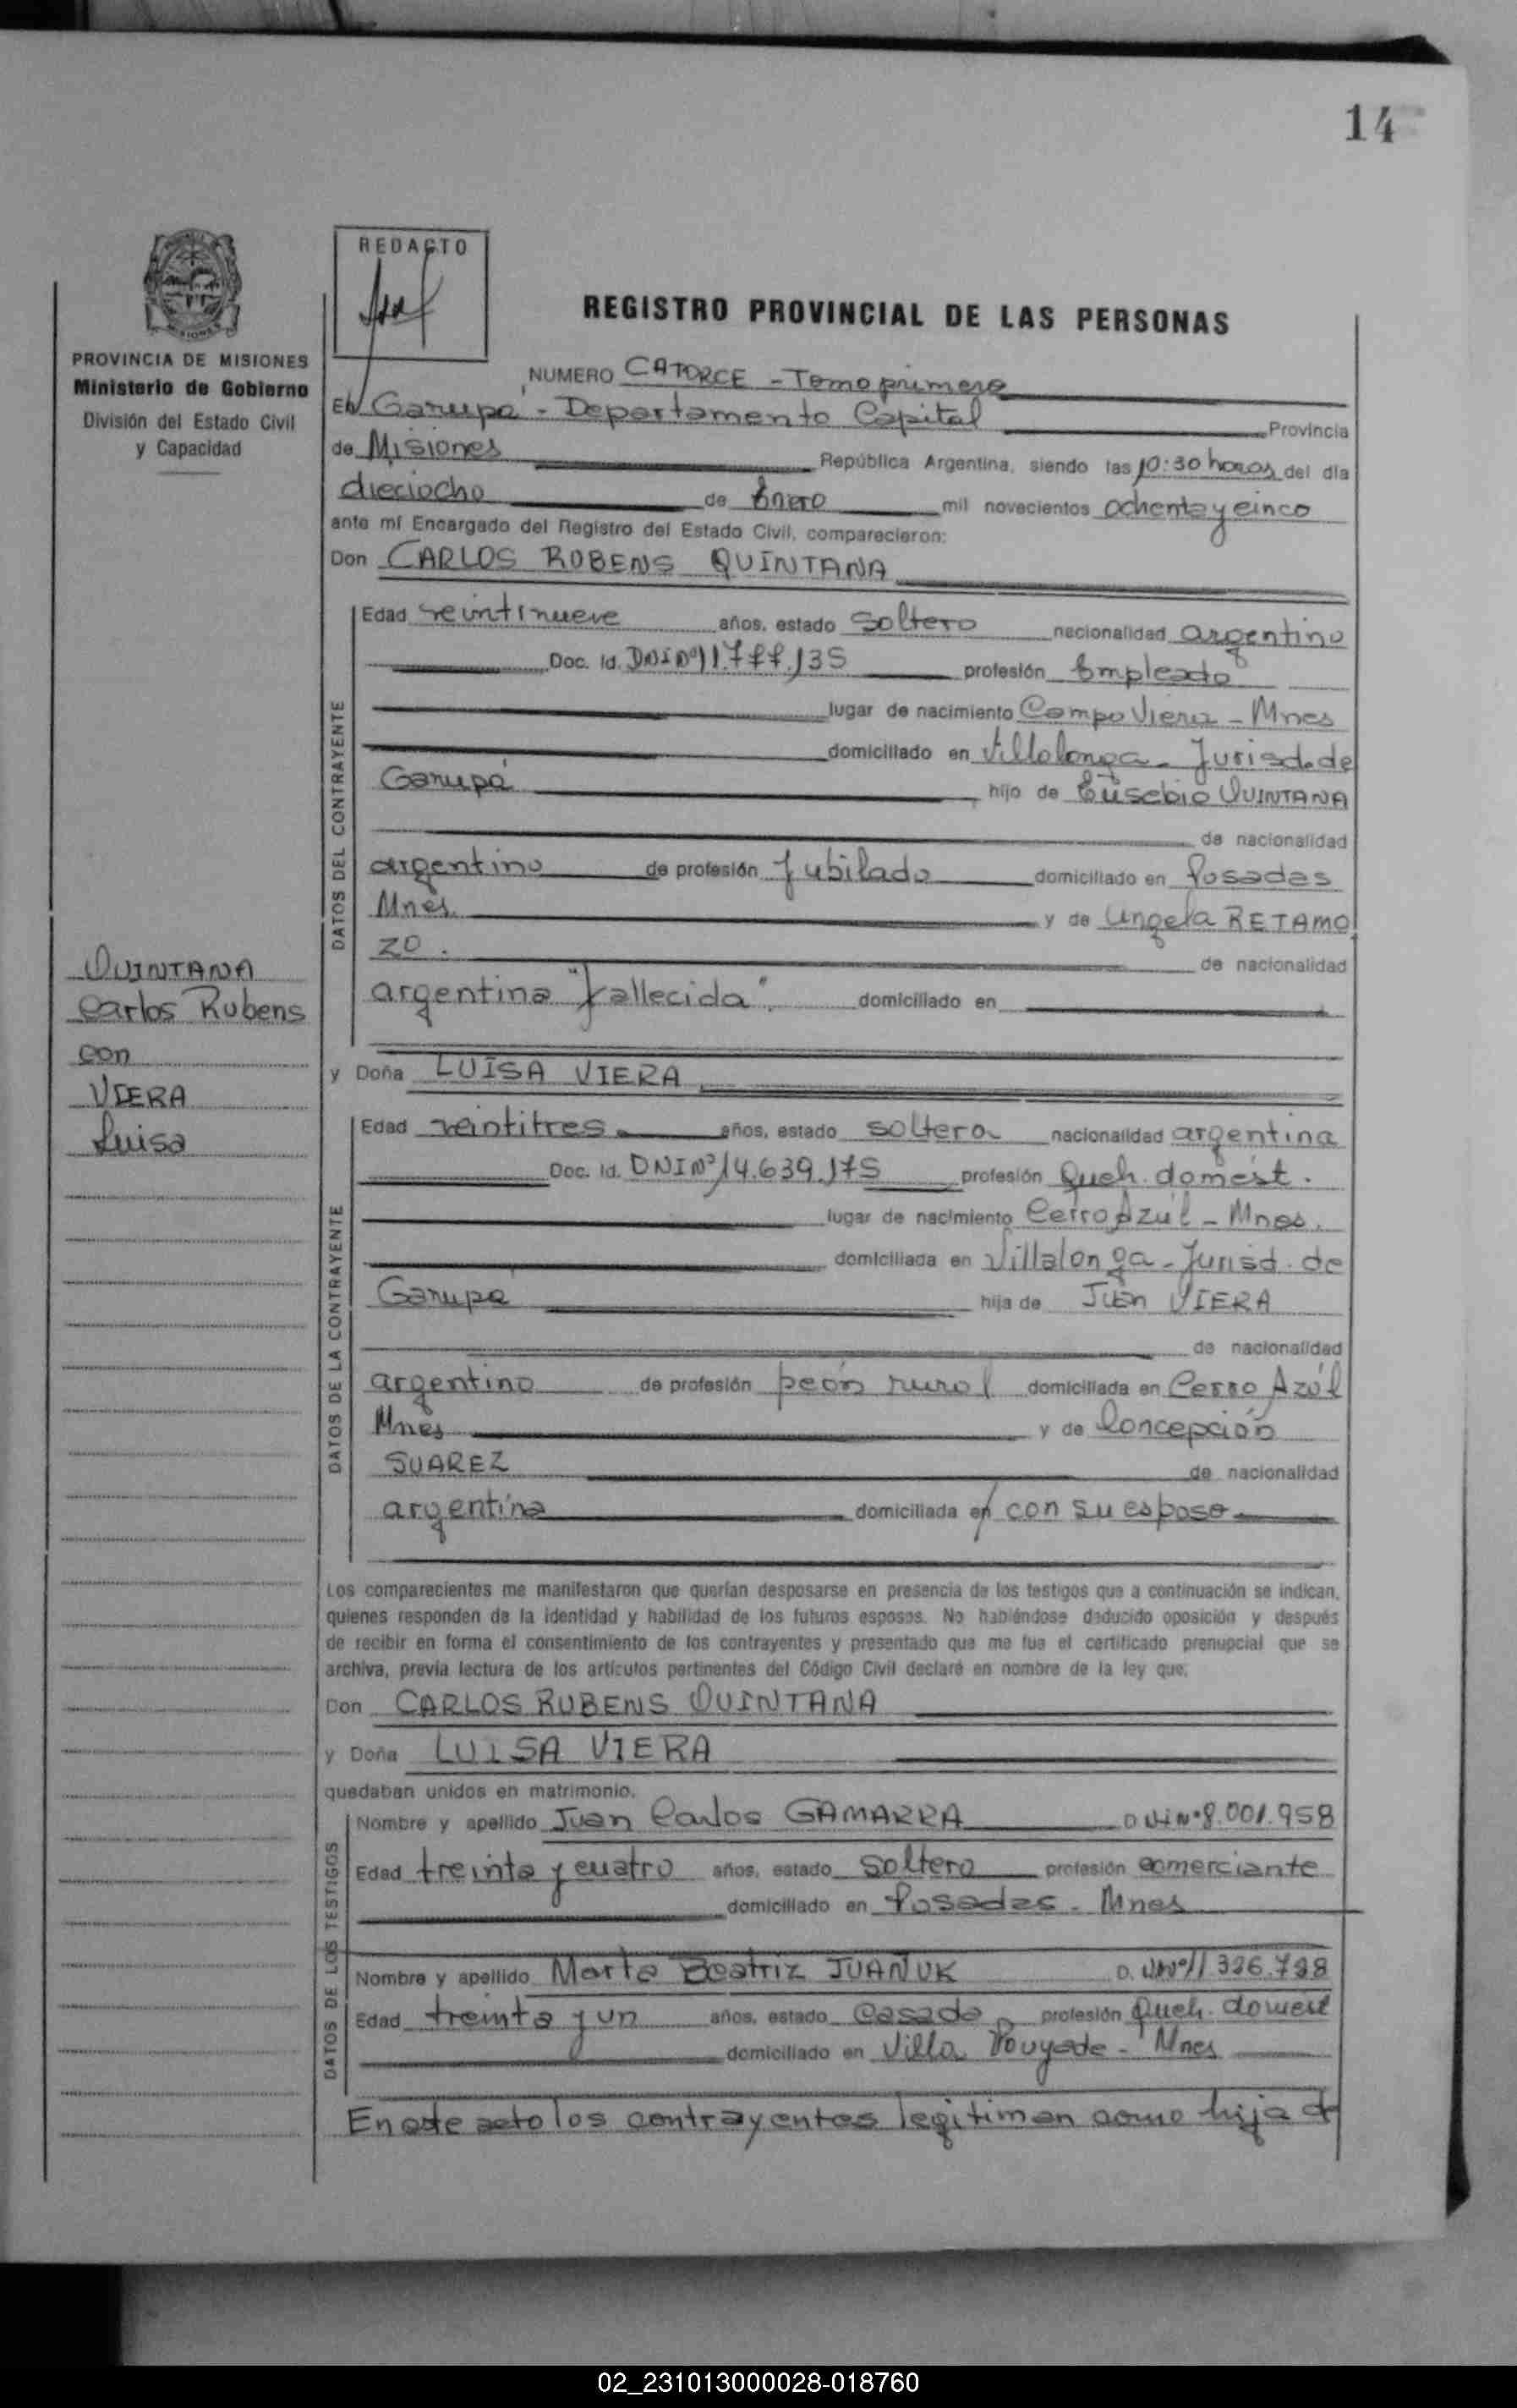 14
REDACTO
REGISTRO PROVINCIAL DE LAS PERSONAS
PROVINCIA DE MISIONES
Ministerio de Gobierno
División del Estado Civil
y Capacidad
NUMERO CATORCE - Tomo primero
En Garupá - Departamento Capital Provincia
de Misiones República Argentina, siendo las 10:30 horas del día
dieciocho de Enero mil novecientos ochenta y cinco
ante mí Encargado del Registro del Estado Civil, comparecieron:
Don CARLOS RUBENS QUINTANA
DATOS DEL CONTRAYENTE
Edad veintinueve años, estado soltero nacionalidad argentino
Doc. Id. DNI Nº profesión Empleado
lugar de nacimiento Campo Viera - Mnes
domiciliado en Villalonga - Jurisd. de
Garupá hijo de Eusebio QUINTANA
de nacionalidad
argentino de profesión Jubilado domiciliado en Posadas
Mnes y de Angela RETAMO
ZO. de nacionalidad
argentina "fallecida". domiciliado en
QUINTANA
Carlos Rubens
con
VIERA
Luisa
y Doña LUISA VIERA
DATOS DE LA CONTRAYENTE
Edad veintitres años, estado soltera nacionalidad argentina
Doc. Id. DNI Nº 14.639.175 profesión Queh. domést.
lugar de nacimiento Cerro Azúl - Mnes.
domiciliada en Villalonga - Jurisd. de
Garupá hija de Juan VIERA
de nacionalidad
argentino de profesión peón rural domiciliada en Cerro Azúl
Mnes y de Concepción
SUAREZ de nacionalidad
argentina domiciliada en con su esposo
Los comparecientes me manifestaron que querían desposarse en presencia de los testigos que a continuación se indican,
quienes responden de la identidad y habilidad de los futuros esposos. No habiéndose deducido oposición y después
de recibir en forma el consentimiento de los contrayentes y presentado que me fue el certificado prenupcial que se
archiva, previa lectura de los artículos pertinentes del Código Civil declaré en nombre de la ley que,
Don CARLOS RUBENS QUINTANA
y Doña LUISA VIERA
quedaban unidos en matrimonio.
DATOS DE LOS TESTIGOS
Nombre y apellido Juan Carlos GAMARRA D.N.I Nº 8.001.958
Edad treinta y cuatro años, estado soltero profesión comerciante
domiciliado en Posadas - Mnes
Nombre y apellido Marta Beatriz JUANUK
Edad treinta y un años, estado casada profesión Queh. domést
domiciliado en Villa - Mnes
En este acto los contrayentes legitiman como hija de
02_231013000028-018760